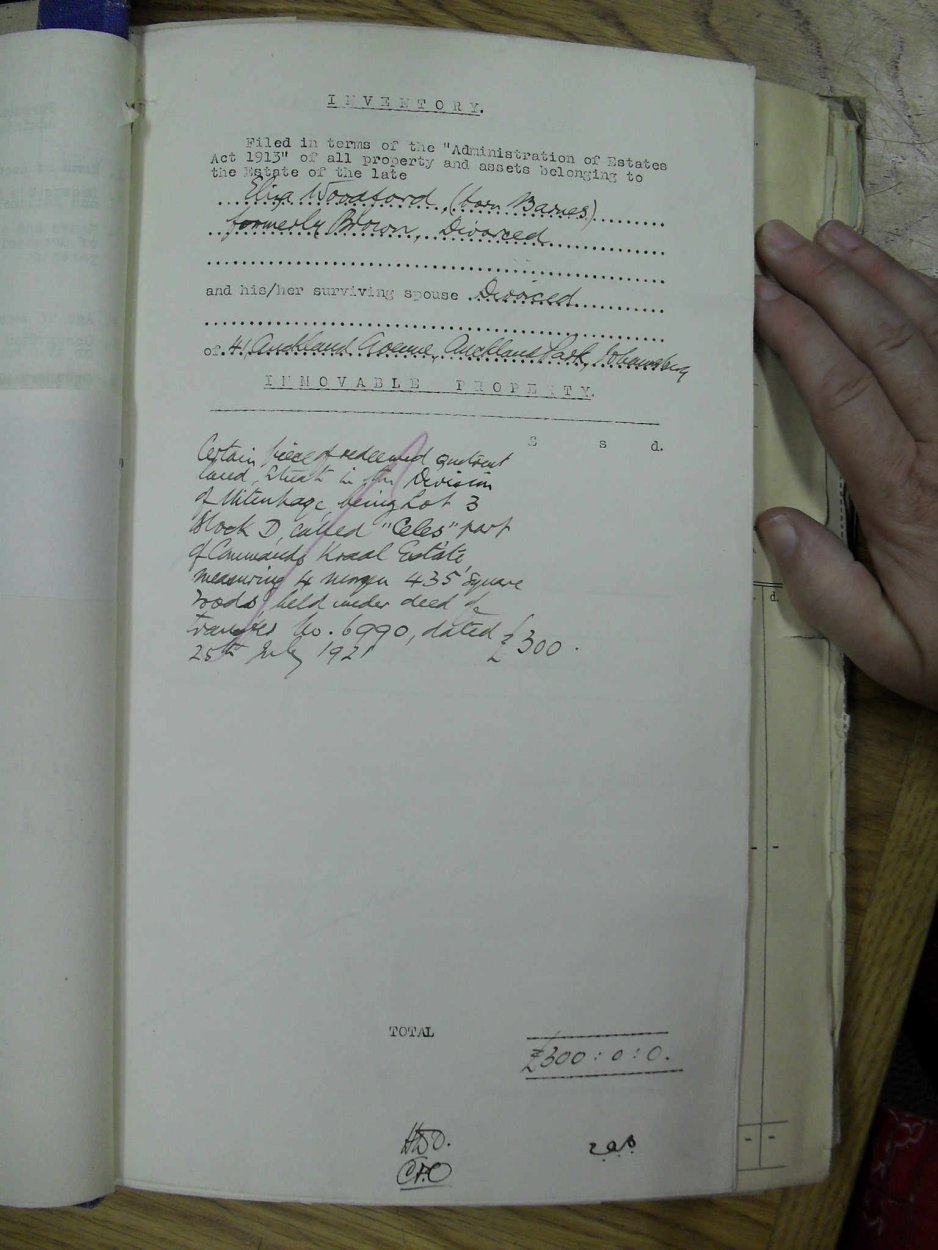 INVENTORY.
Filed in terms of the "Administration of Estates
Act 1913" of all property and assets belonging to
the Estate of the late
Eliza Woodford, (born Barnes)
formerly Brown, Divorced
and his/her surviving spouse Divorced
of 41 Auckland Avenue, Auckland Park, Johannesburg
IMMOVABLE PROPERTY.
£ s d.
Certain piece of redeemed quitrent
land, situate in the Division
of Uitenhage being Lot 3
Block D, called "Celes" part
of Commando Kraal Estate
measuring 4 morgen 435 square
roods held under deed of
transfer No. 6990, dated
25th July 1921 £300.
TOTAL
£300:0:0.